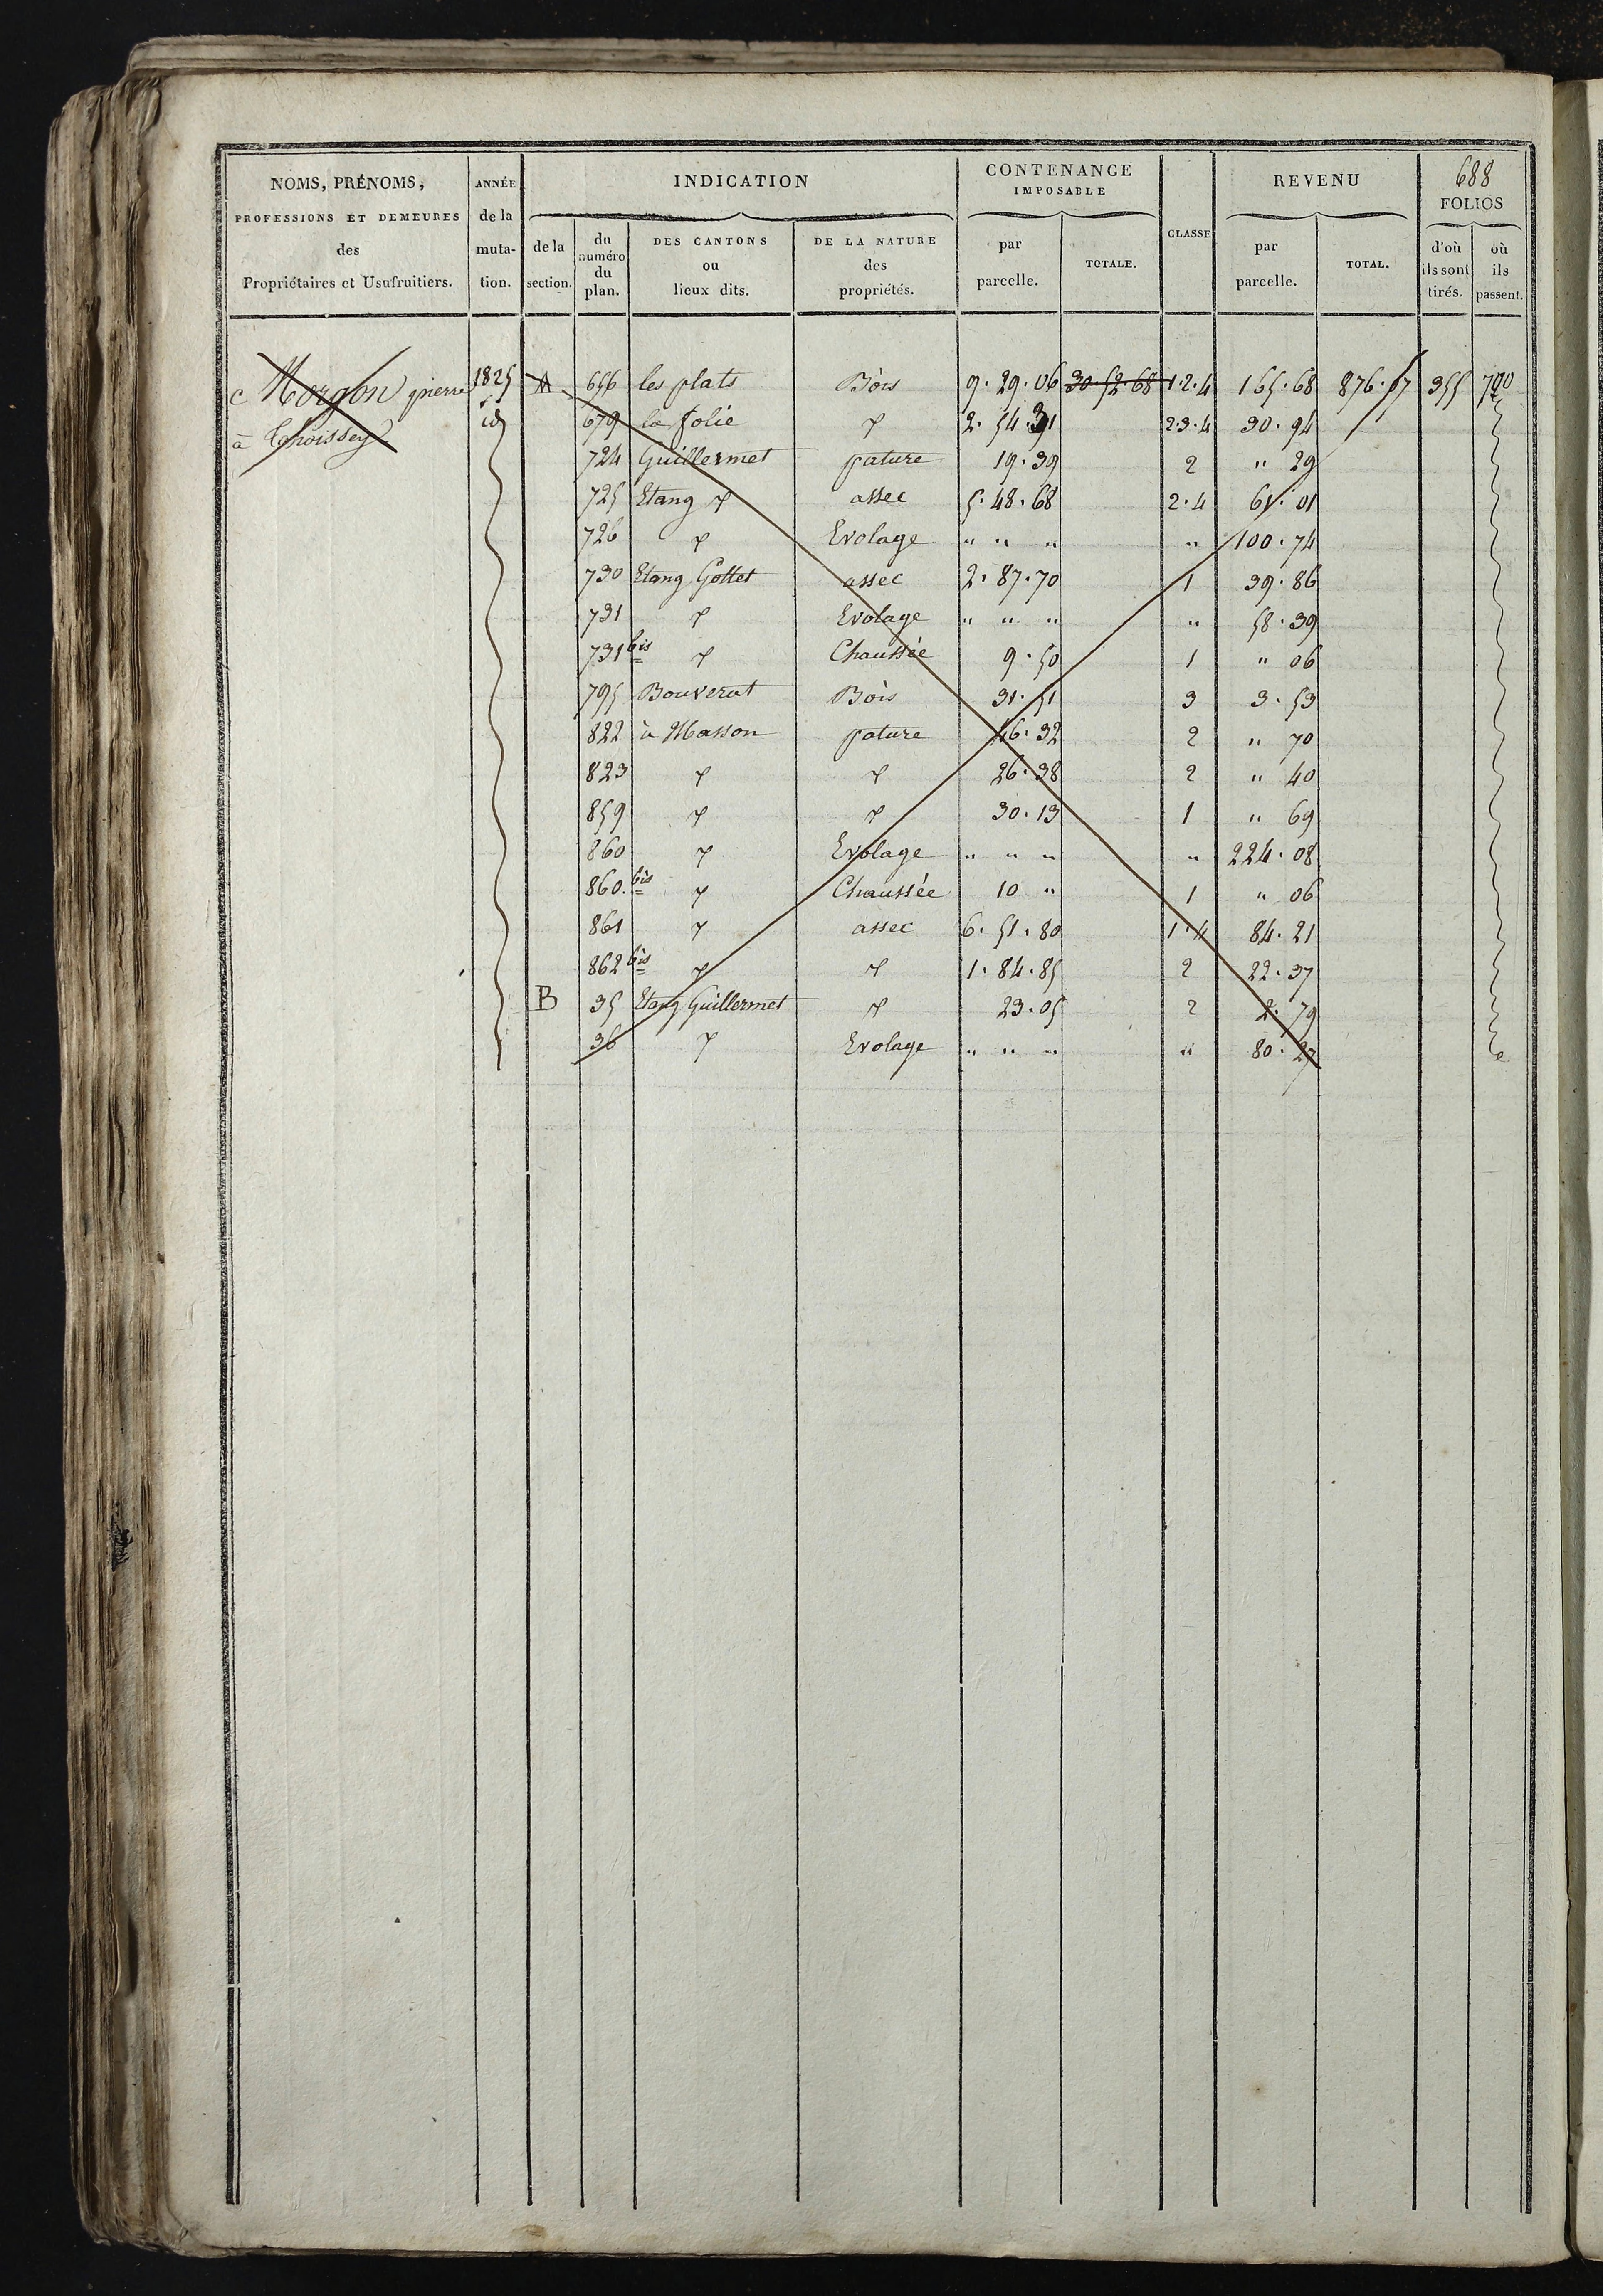 688
NOMS, PRÉNOMS, PROFESSIONS ET DEMEURES des Propriétaires et Usufruitiers.
ANNÉE de la muta- tion.
INDICATION
de la section.
du numéro du plan.
DES CANTONS ou lieux dits.
DE LA NATURE des propriétés.
CONTENANCE IMPOSABLE
par parcelle.
TOTALE.
CLASSE
REVENU
par parcelle.
TOTAL.
FOLIOS
d'où ils sont tirés.
où ils passent.
c Morgon pierre 1825 A 656 les plats Bois 9. 29. 06 30. 52. 68 1.2.4 165. 68 876. 07 355 790
à Thoissey id 679 la folie d 2. 54. 31 2.3.4 30. 94
724 Guillermet pature 19. 39 2 " 29
725 Etang d assec 5. 48. 68 2.4 61. 01
726 d Evolage " " " " 100. 74
730 Etang Gottet assec 2. 87. 70 1 39. 86
731 d Evolage " " " " 58. 39
731 bis d Chaussée 9. 50 1 " 06
795 Bouverat Bois 31. 51 3 3. 53
822 à Masson pature 46. 32 2 " 70
823 d d 26. 38 2 " 40
859 d d 30. 13 1 " 69
860 d Evolage " " " " 224. 08
860. bis d Chaussée 10 " 1 " 06
861 d assec 6. 51. 80 1.4 84. 21
862 bis d d 1. 84. 85 2 22. 37
B 35 Etang Guillermet d 23. 05 2 2. 79
36 d Evolage " " " " 80. 27